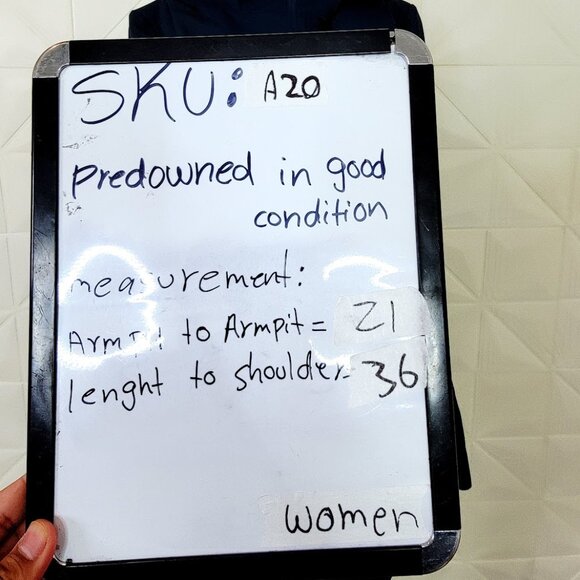 SKU: A20
Predowned in good
condition
measurement:
Armpit to Armpit = 21
lenght to shoulder 36
women